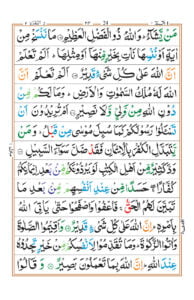 مَنْ يَّشَآءُ ؕ وَاللّٰهُ ذُو الْفَضْلِ الْعَظِيْمِ ۝ مَا نَنْسَخْ مِنْ
اٰيَةٍ اَوْ نُنْسِهَا نَاْتِ بِخَيْرٍ مِّنْهَاۤ اَوْ مِثْلِهَا ؕ اَلَمْ تَعْلَمْ
اَنَّ اللّٰهَ عَلٰى كُلِّ شَيْءٍ قَدِيْرٌ ۝ اَلَمْ تَعْلَمْ اَنَّ
اللّٰهَ لَهٗ مُلْكُ السَّمٰوٰتِ وَالْاَرْضِ ؕ وَمَا لَكُمْ مِّنْ
دُوْنِ اللّٰهِ مِنْ وَّلِيٍّ وَّلَا نَصِيْرٍ ۝ اَمْ تُرِيْدُوْنَ اَنْ
تَسْـَٔلُوْا رَسُوْلَكُمْ كَمَا سُىِٕلَ مُوْسٰى مِنْ قَبْلُ ؕ وَمَنْ
يَّتَبَدَّلِ الْكُفْرَ بِالْاِيْمَانِ فَقَدْ ضَلَّ سَوَآءَ السَّبِيْلِ ۝
وَدَّ كَثِيْرٌ مِّنْ اَهْلِ الْكِتٰبِ لَوْ يَرُدُّوْنَكُمْ مِّنْۢ بَعْدِ اِيْمَانِكُمْ
كُفَّارًا ۚۖ حَسَدًا مِّنْ عِنْدِ اَنْفُسِهِمْ مِّنْۢ بَعْدِ مَا
تَبَيَّنَ لَهُمُ الْحَقُّ ۚ فَاعْفُوْا وَاصْفَحُوْا حَتّٰى يَاْتِيَ اللّٰهُ
بِاَمْرِهٖ ؕ اِنَّ اللّٰهَ عَلٰى كُلِّ شَيْءٍ قَدِيْرٌ ۝ وَاَقِيْمُوا الصَّلٰوةَ
وَاٰتُوا الزَّكٰوةَ ؕ وَمَا تُقَدِّمُوْا لِاَنْفُسِكُمْ مِّنْ خَيْرٍ تَجِدُوْهُ
عِنْدَ اللّٰهِ ؕ اِنَّ اللّٰهَ بِمَا تَعْمَلُوْنَ بَصِيْرٌ ۝ وَقَالُوْا